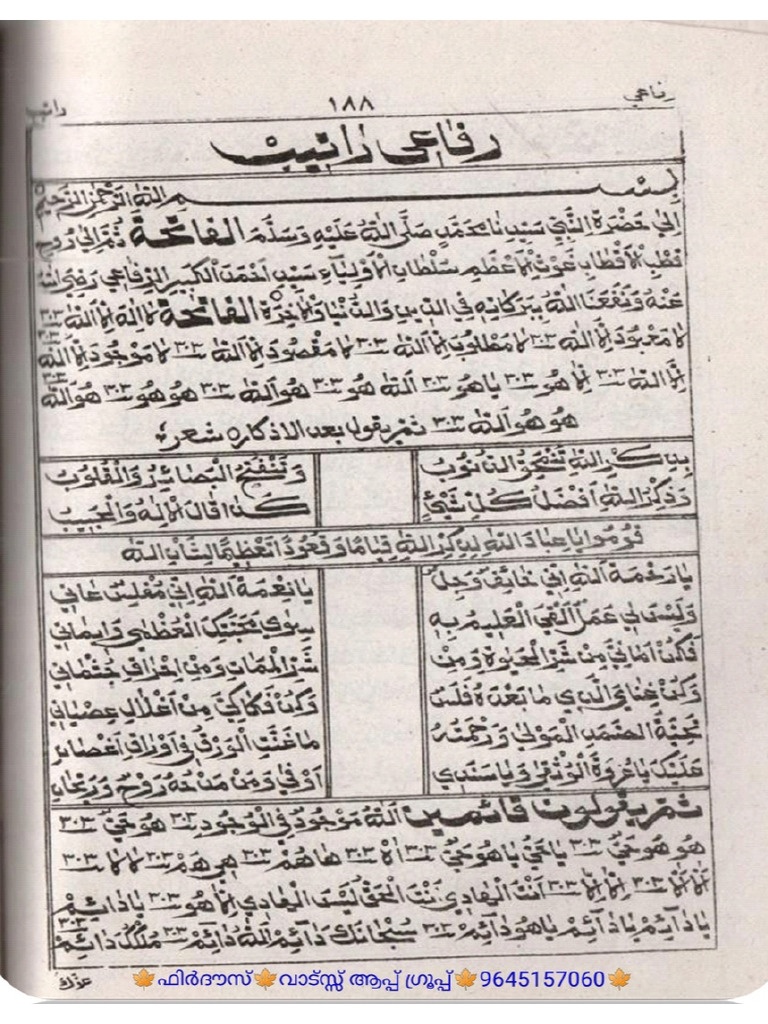 رفاعي ١٨٨ راتيب
رفاعي راتيب
بسم الله الرحمن الرحيم
إِلَى حَضْرَةِ النَّبِيِّ سَيِّدِنَا مُحَمَّدٍ صَلَّى اللهُ عَلَيْهِ وَسَلَّمَ الفَاتِحَةْ ثُمَّ إِلَى رُوحِ
قُطْبِ الْأَقْطَابِ غَوْثِ الْأَعْظَمِ سُلْطَانِ الْأَوْلِيَاءِ سَيِّدِ أَحْمَدَ الْكَبِيرِ الرِّفَاعِي رَضِيَ اللهُ
عَنْهُ وَنَفَعَنَا اللهُ بِبَرَكَاتِهِ فِي الدِّينِ وَالدُّنْيَا وَالْآخِرَةِ الْفَاتِحَةْ لَا إِلَهَ إِلَّا اللهُ ٣٠٣
لَا مَعْبُودَ إِلَّا اللهُ ٣٠٣ لَا مَطْلُوبَ إِلَّا اللهُ ٣٠٣ لَا مَقْصُودَ إِلَّا اللهُ ٣٠٣ لَا مَوْجُودَ إِلَّا اللهُ
إِلَّا اللهُ ٣٠٣ إِلَّا هُو ٣٠٣ يَاهُو ٣٠٣ اَللهُ هُو ٣٠٣ هُو اَللهُ ٣٠٣ هُو هُو ٣٠٣ هُو اَللهُ
هُو هُو اَللهُ ٣٠٣ ثم يقول بعد الاذكار شعر
بِذِكْرِ اللهِ تَنْمَحِقُ الذُّنُوبُ وَتَنْفَتِحُ الْبَصَائِرُ وَالْقُلُوبُ
وَذِكْرُ اللهِ أَفْضَلُ كُلِّ شَيْءٍ كَذَا قَالَ الْإِلَهُ وَالْحَبِيبُ
قُومُوا يَا عِبَادَ اللهِ لِذِكْرِ اللهِ قِيَامًا وَقُعُودًا تَعْظِيمًا لِشَانِ اللهِ
يَا رَحْمَةَ اللهِ إِنِّي خَائِفٌ وَجِلٌ يَا نِعْمَةَ اللهِ إِنِّي مُفْلِسٌ عَانِي
وَلَيْسَ لِي عَمَلٌ أَلْقَى الْعَلِيمَ بِهِ سِوَى مَحَبَّتِكَ الْعُظْمَى وَإِيمَانِي
فَكُنْ أَمَانِيَ مِنْ شَرِّ الْحَيٰوةِ وَمِنْ شَرِّ الْمَمَاتِ وَمِنْ إِحْرَاقِ جُثْمَانِي
وَكُنْ غِنَايَ الَّذِي مَا بَعْدَهُ فَلَسٌ وَكُنْ فَكَاكِيَ مِنْ أَغْلَالِ عِصْيَانِي
تَحِيَّةُ الصَّمَدِ الْمَوْلَى وَرَحْمَتُهُ مَا غَنَّتِ الْوُرْقُ فِي أَوْرَاقِ أَغْصَانِ
عَلَيْكَ يَا عُرْوَةَ الْوُثْقَى وَيَا سَنَدِي أَوْفَى وَمَنْ مَدْحُهُ رَوْحٌ وَرَيْحَانِ
ثم يقولون قائمين اَللهُ مَوْجُودٌ فِي الْوُجُودِ ٣٠٣ هُو حَيٌّ ٣٠٣
هُو هُو حَيٌّ ٣٠٣ يَاحَيُّ يَاهُو حَيٌّ ٣٠٣ ٣٠٣ هَاهُمْ ٣٠٣ هِي هَمْ ٣٠٣ لَا لَا ٣٠٣
٣٠٣ ٣٠٣ أَنْتَ الْهَادِي أَنْتَ الْحَقُّ لَيْسَ الْهَادِي إِلَّا هُو ٣٠٣ يَا دَائِمْ
يَا دَآئِمْ يَا دَآئِمْ يَاهُو دَآئِمْ ٣٠٣ سُبْحَانَكَ دَآئِمْ اَللهُ دَائِمْ ٣٠٣ مُلْكُكَ دَائِمْ ٣٠٣
عزك
🍁ഫിർദൗസ്🍁വാട്സ്സ് ആപ്പ് ഗ്രൂപ്പ്🍁9645157060🍁